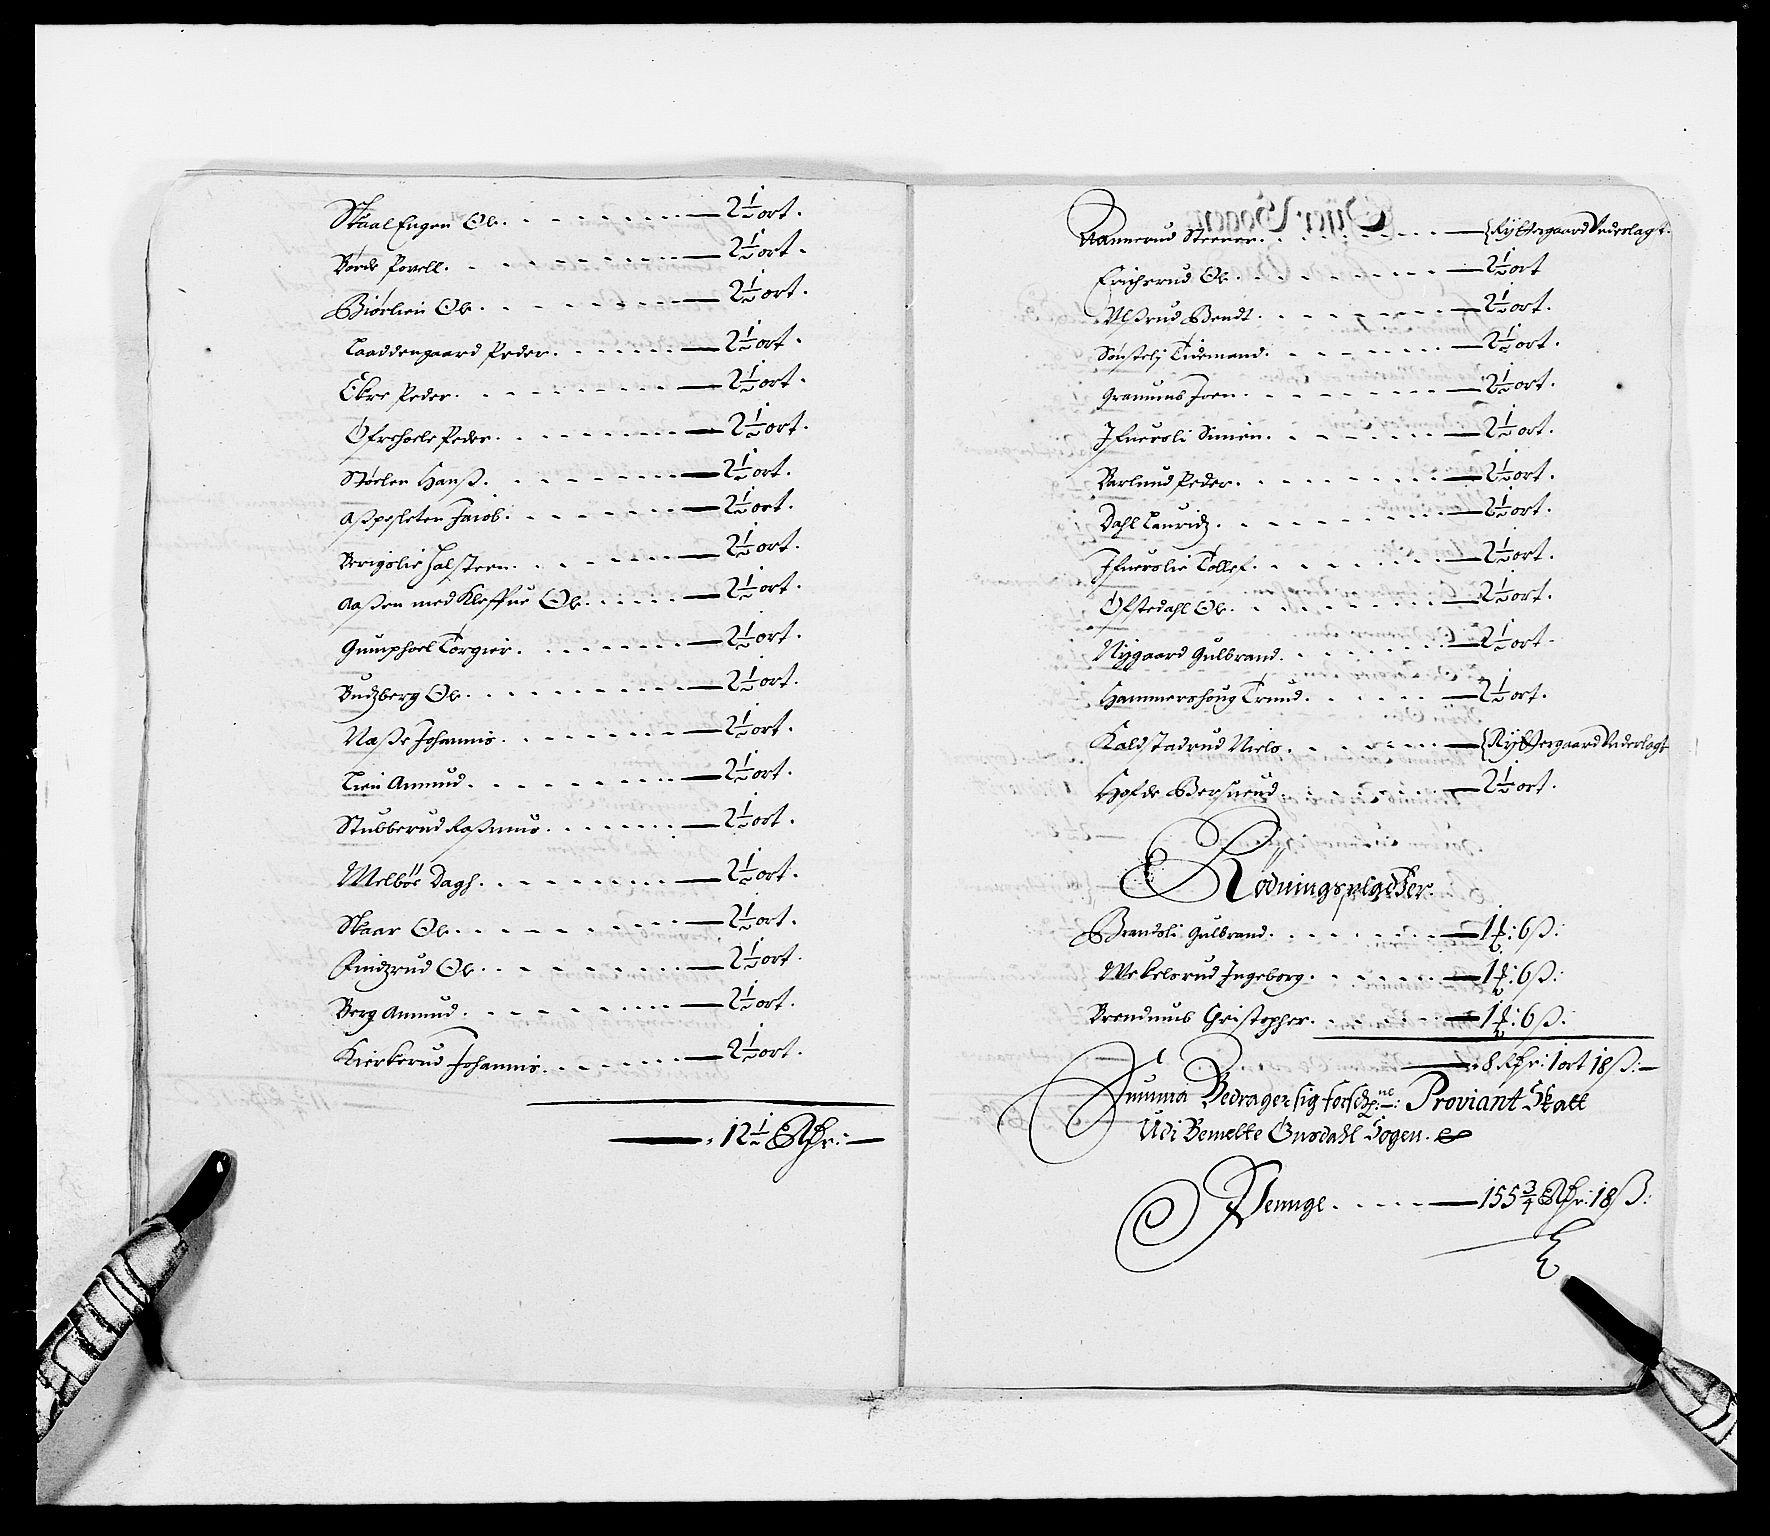 Skaal Engen Ole. 2½ ort.
Börde Povell. 2½ ort.
Biörlien Ole. 2½ ort.
Laaddengaard Peder. 2½ ort.
Ekre Peder. 2½ ort.
Ofrehoele Peder. 2½ ort.
Stöelen Hanß. 2½ ort.
Aßpesleten Jacob. 2½ ort.
Berigslie Halsteen. 2½ ort.
Aaßen med Kleffue Ole. 2½ ort.
Gumphoel Torgier. 2½ ort.
Budzberg Ole. 2½ ort.
Naße Johannis. 2½ ort.
Lien Amund. 2½ ort.
Stubberud Raßmus. 2½ ort.
Melböe Dagh. 2½ ort.
Skaar Ole. 2½ ort.
Findzrud Ole. 2½ ort.
Berg Amund. 2½ ort.
Kierkerud Johannis. 2½ ort.
12½ Rdr:
Rannerud Steener. {Ryttergaard Underlagt.
Ericherud Ole. 2½ ort
Ulßrud Bendt. 2½ ort.
Sönstelj Tidemand. 2½ ort.
Gramums Joen. 2½ ort.
Ifuersli Simen. 2½ ort.
Barlund Peder. 2½ ort.
Dahl Lauridz. 2½ ort.
Ifuerslie Tollef. 2½ ort.
Ofstedahl Ole. 2½ ort.
Nygaard Gulbrand. 2½ ort.
Hammershoug Trund. 2½ ort.
Kaldstadrud Niels. {Ryttergaard Underlagt
Hofde Bersuend. 2½ ort.
Rödningspladtzer.
Brendsli Gulbrand. 1 ₰: 6 ß:
Mekelsrud Ingeborg. 1 ₰: 6 ß:
Brendums Christopher. 1 ₰: 6 ß:
8 Rdr: 1 ort 18 ß:
Summa Bedrager sig forschr:ne: Proviant Skatt
Udi Bemelte Gusdahl Sogen.
Penge. 155¾ Rdr: 18 ß: